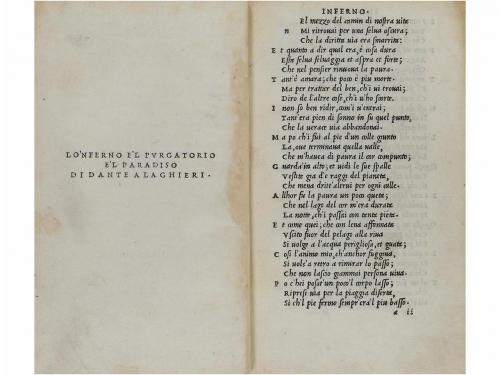 LO'NFERNO E'L PVRGATORIO
E'L PARADISO
DI DANTE ALAGHIERI.
INFERNO.
El mezzo del camin di nostra uita
n Mi ritrouai per una selua oscura;
Che la diritta uia era smarrita:
E t quanto a dir qual era, è cosa dura
Esta selua seluaggia et aspra et forte;
Che nel pensier rinuoua la paura.
T ant'è amara; che poco è piu morte.
Ma per trattar del ben, ch'i ui trouai;
Diro de l'altre cose, ch'i u'ho scorte.
I non so ben ridir, com'i u'entrai;
Tant'era pien di sonno in su quel punto,
Che la uerace uia abbandonai.
M a po ch'i fui al pie d'un colle giunto
La, oue terminaua quella ualle,
Che m'hauea di paura il cor compunto;
G uarda'in alto; et uidi le sue spalle
Vestite gia d'e raggi del pianeta,
Che mena dritt'altrui per ogni calle.
A llhor fu la paura un poco queta;
Che nel lago del cor m'era durata
La notte, ch'i passai con tanta pieta.
E t come quei; che con lena affannata
Vscito fuor del pelago alla riua
Si uolge a l'acqua perigliosa, et guata;
C osi l'animo mio, ch'anchor fuggiua,
Si uols'a retro a rimirar lo passo;
Che non lascio giammai persona uiua.
P o c'hei posat'un poco'l corpo lasso;
Ripresi uia per la piaggia diserta,
Si ch'l pie fermo sempr'era'l piu basso.
a ii